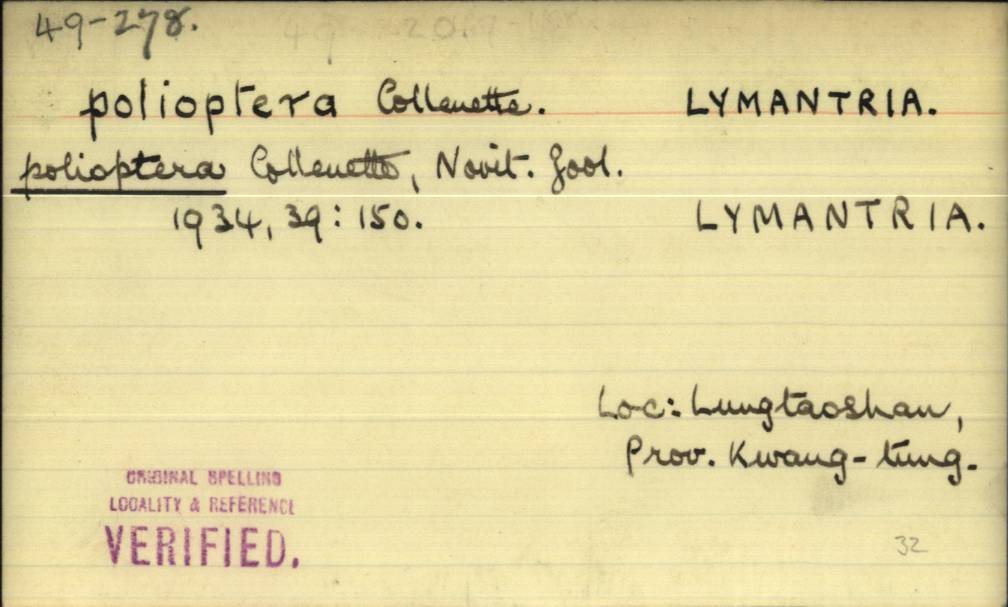 49-278.
polioptera Collenette. LYMANTRIA.
polioptera Collenette, Novit. Zool.
1934, 39: 150. LYMANTRIA.
Loc: Lungtaoshan,
Prov. Kwang-tung.
ORIGINAL SPELLING
LOCALITY & REFERENCE
VERIFIED.
32